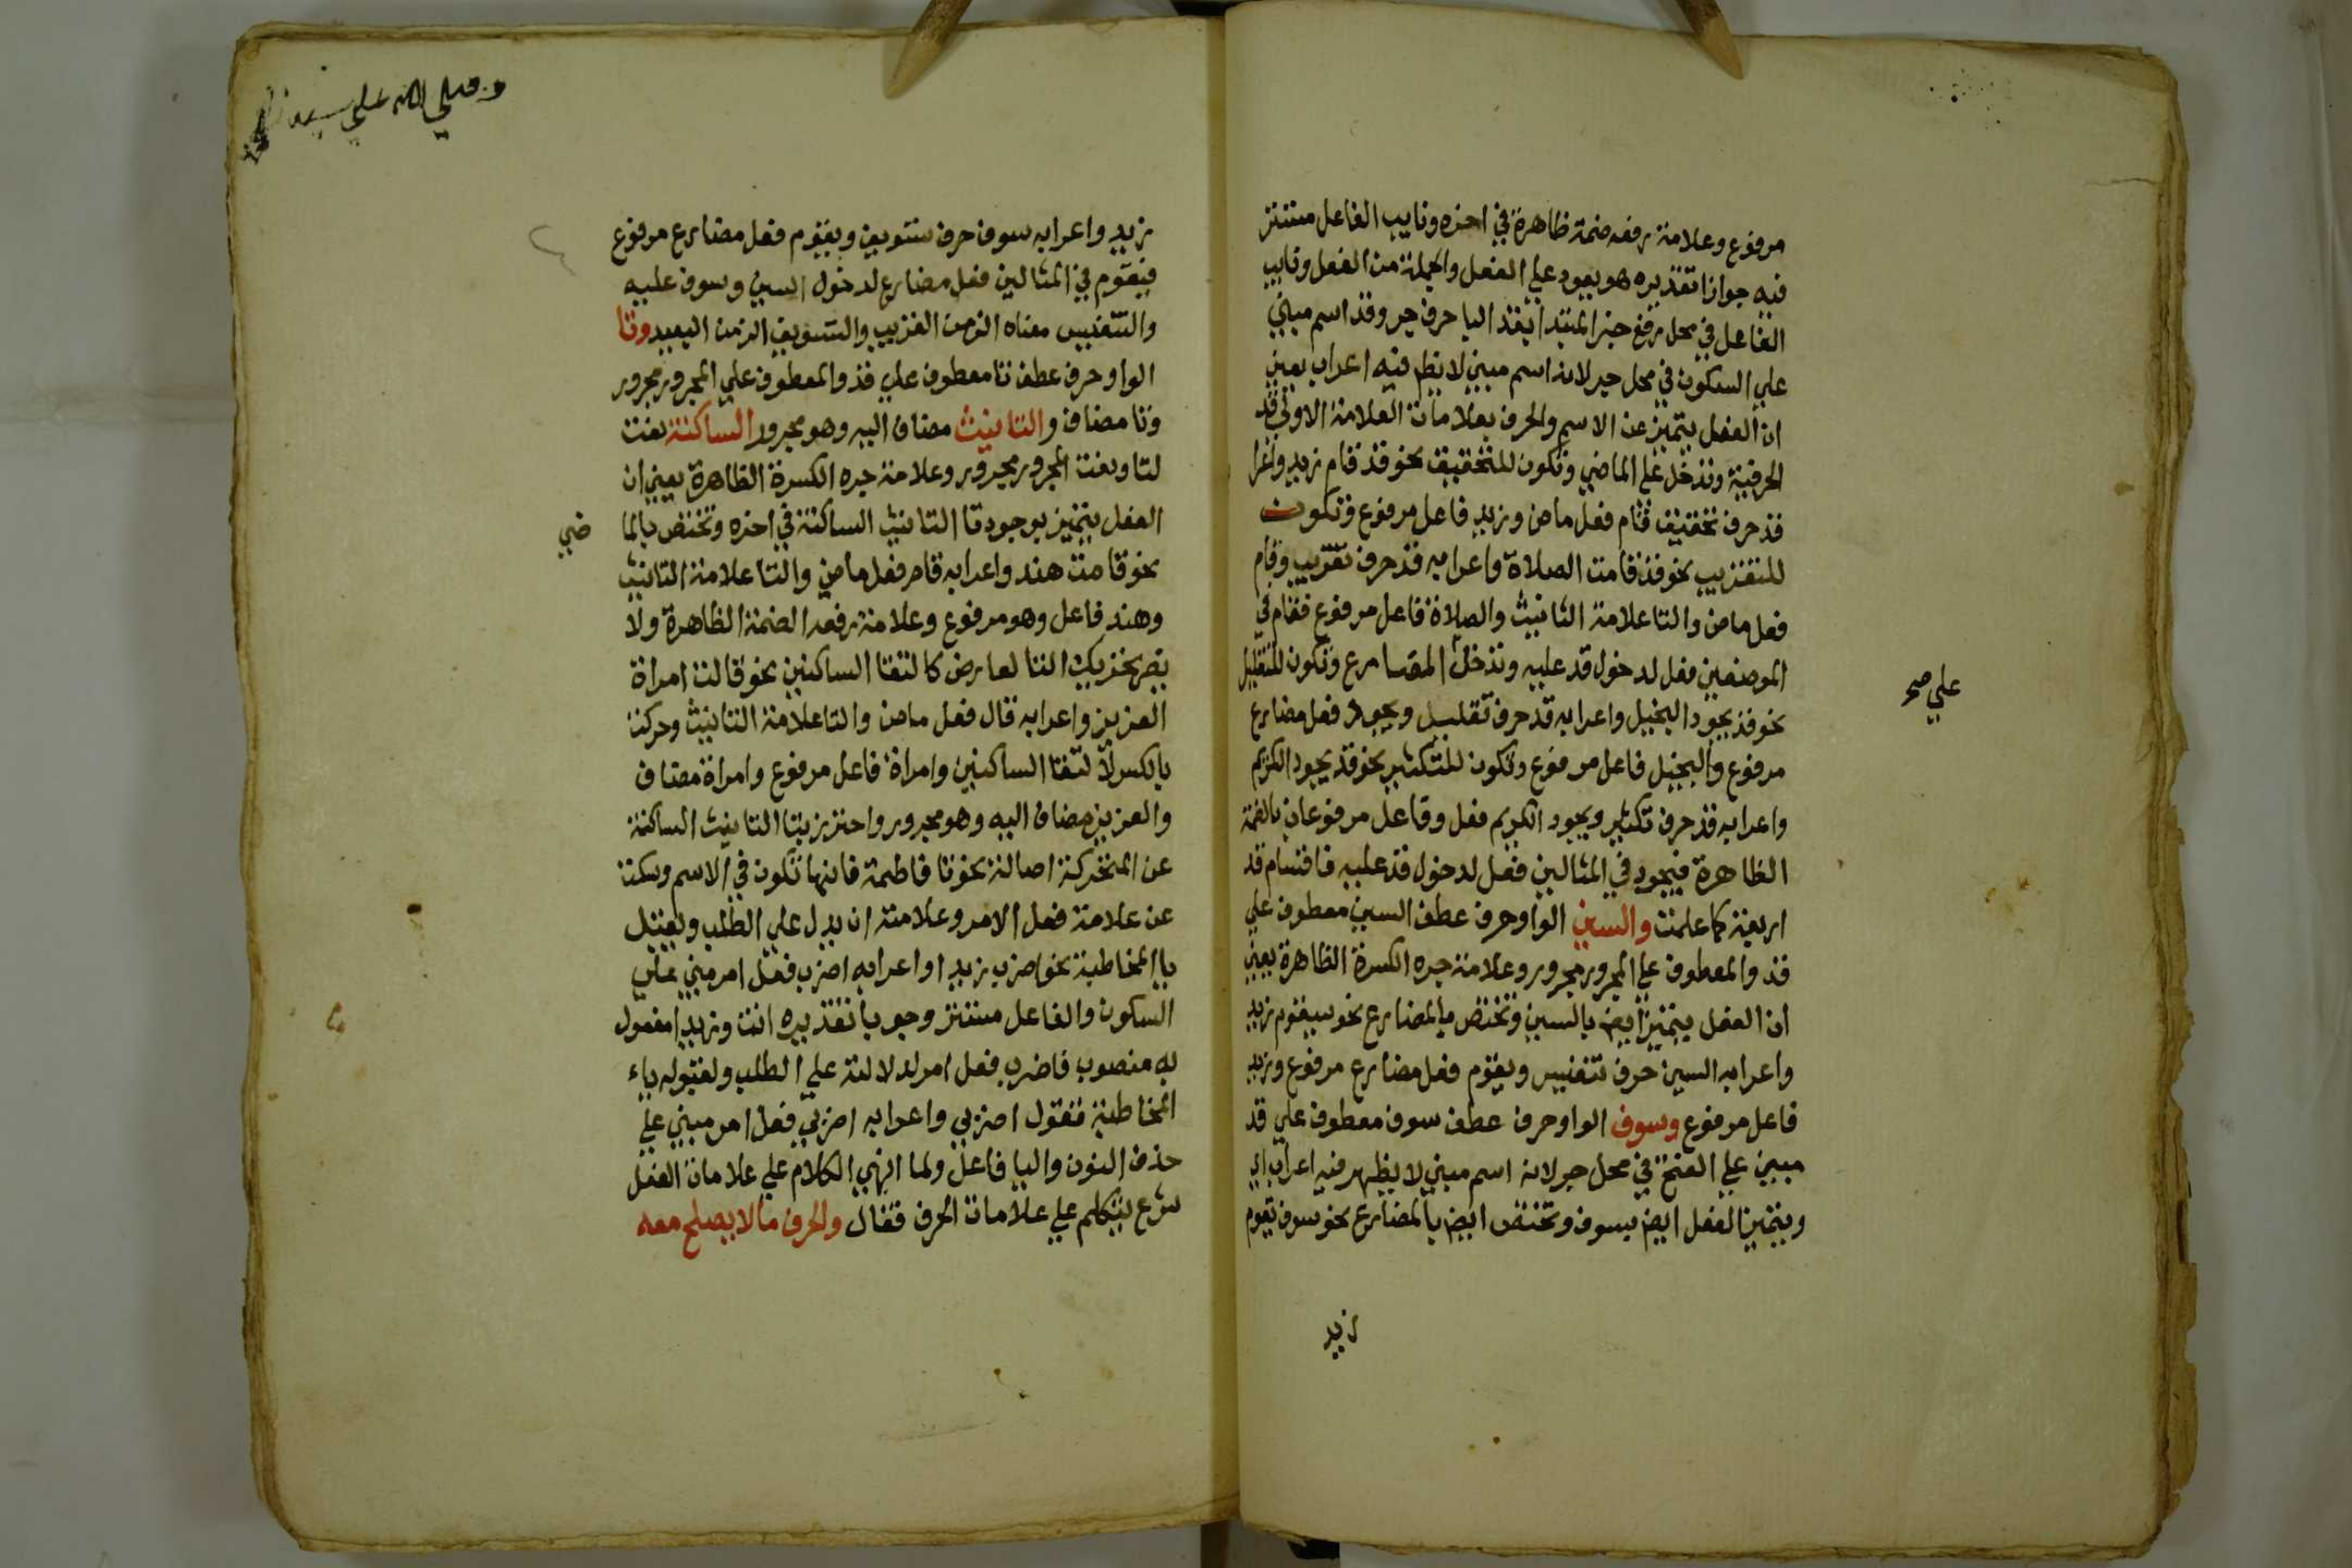 مرفوع وعلامة رفعه ضمة ظاهرة في اخره ونايب الفاعل مستتر
فيه جوازا تقديره هو يعود علي الفعل والجملة من الفعل ونايب
الفاعل في محل رفع خبر المبتدا بقد البا حرف جر وقد اسم مبني
علي السكون في محل جر لانه اسم مبني لا يظهر فيه اعراب يعني
ان الفعل يتميز عن الاسم والحرف بعلامات العلامة الاولي قد
الحرفية وتدخل علي الماضي وتكون للتحقيق نحو قد قام زيد واعرا
قد حرف تحقيق قام فعل ماض وزيد فاعل مرفوع وتكون
للتقريب نحو قد قامت الصلاة واعرابه قد حرف تقريب وقام
فعل ماض والتا علامة التانيث والصلاة فاعل مرفوع فقام في
الموضعين فعل لدخول قد عليه وتدخل المضارع وتكون للتقليل
علي صح
نحو قد يجود البخيل واعرابه قد حرف تقليل ويجود فعل مضارع
مرفوع والبخيل فاعل مرفوع وتكون للتكثير نحو قد يجود الكريم
واعرابه قد حرف تكثير ويجود الكريم فعل وفاعل مرفوعان بالضمة
الظاهرة فيجود في المثالين فعل لدخول قد عليه فاقسام قد
اربعة كما علمت والسين الواو حرف عطف السين معطوف علي
قد والمعطوف علي المجرور مجرور وعلامة جره الكسرة الظاهرة يعني
ان الفعل يتميز ايض بالسين وتختص بالمضارع نحو سيقوم زيد
واعرابه السين حرف تنفيس ويقوم فعل مضارع مرفوع وزيد
فاعل مرفوع وسوف الواو حرف عطف سوف معطوف علي قد
مبني علي الفتح في محل جر لانه اسم مبني لا يظهر فيه اعراب
ويتميز الفعل ايض بسوف وتختص ايض بالمضارع نحو سوف يقوم
زيد
وصلي الله علي سيدنا
زيد واعرابه سوف حرف تسويف ويقوم فعل مضارع مرفوع
فيقوم في المثالين فعل مضارع لدخول السين وسوف عليه
والتنفيس معناه الزمن القريب والتسويف الزمن البعيد وتا
الواو حرف عطف تا معطوف علي قد والمعطوف علي المجرور مجرور
وتا مضاف والتانيث مضاف اليه وهو مجرور الساكنة نعت
لتا ونعت المجرور مجرور وعلامة جره الكسرة الظاهرة يعني ان
الفعل يتميز بوجود تا التانيث الساكنة في اخره وتختص بالما ضي
نحو قامت هند واعرابه قام فعل ماض والتا علامة التانيث
وهند فاعل وهو مرفوع وعلامة رفعه الضمة الظاهرة ولا
يضر تحريك التا لعارض كالتقا الساكنين نحو قالت امراة
العزيز واعرابه قال فعل ماض والتا علامة التانيث وحركت
بالكسر لالتقا الساكنين وامراة فاعل مرفوع وامراة مضاف
والعزيز مضاف اليه وهو مجرور واحترز بتا التانيث الساكنة
عن المتحركة اصالة نحو تا فاطمة فانها تكون في الاسم وسكت
عن علامة فعل الامر وعلامته ان يدل علي الطلب ويقبل
يا المخاطبة نحو اضرب زيدا واعرابه اضرب فعل امر مبني علي
السكون والفاعل مستتر وجوبا تقديره انت وزيدا مفعول
به منصوب فاضرب فعل امر لدلالته علي الطلب ولقبوله ياء
المخاطبة فتقول اضربي واعرابه اضربي فعل امر مبني علي
حذف النون واليا فاعل ولما انهي الكلام علي علامات الفعل
شرع يتكلم علي علامات الحرف فقال والحرف ما لا يصلح معه